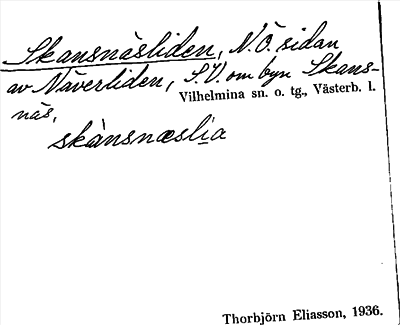 Skansnäsliden, N.Ö. sidan
av Näverliden, S.V. om byn Skans-
Vilhelmina sn. o. tg., Västerb. l.
näs,
skànsnæslia
Thorbjörn Eliasson, 1936.